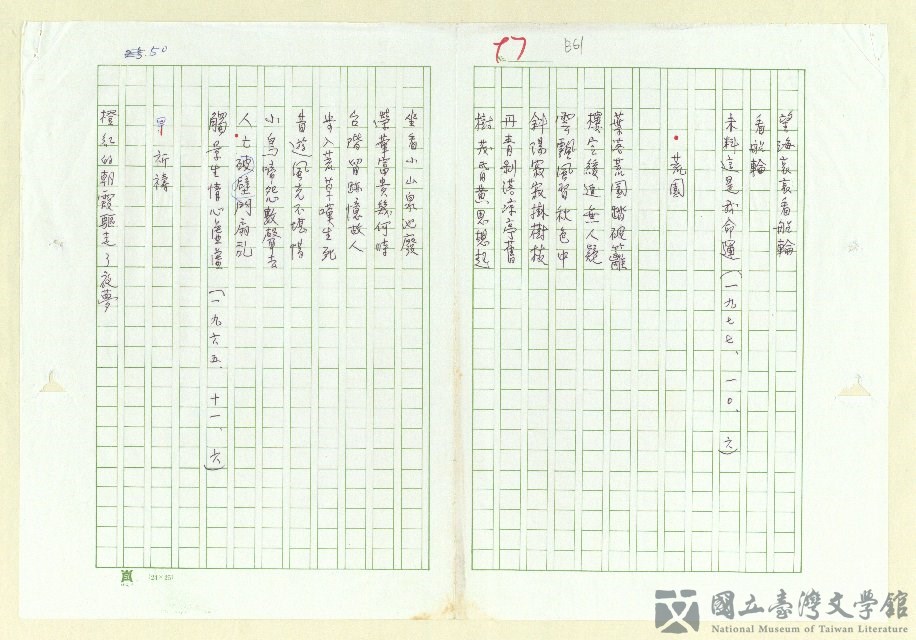 17
望海哀哀看船輪
看船輪
未料這是我命運(一九七七、一0、六)
荒園
葉落荒園踏破籬
樓空緩進無人疑
雲飄風習秋色中
斜陽寂寂掛樹枝
丹青剝落床亭舊
樹茂青黃思想起
坐看小山泉池廢
榮華富貴幾何時
台階留跡憶故人
步入荒草嘆生死
昔遊風光不堪惜
小鳥啼怨數聲去
人亡破壁門扇乱
觸景生情心蘆蘆(一九六五、十一、六)
早祈禱
橙紅的朝霞驅走了夜夢
(24×25)
國立臺灣文學館
National Museum of Taiwan Literature